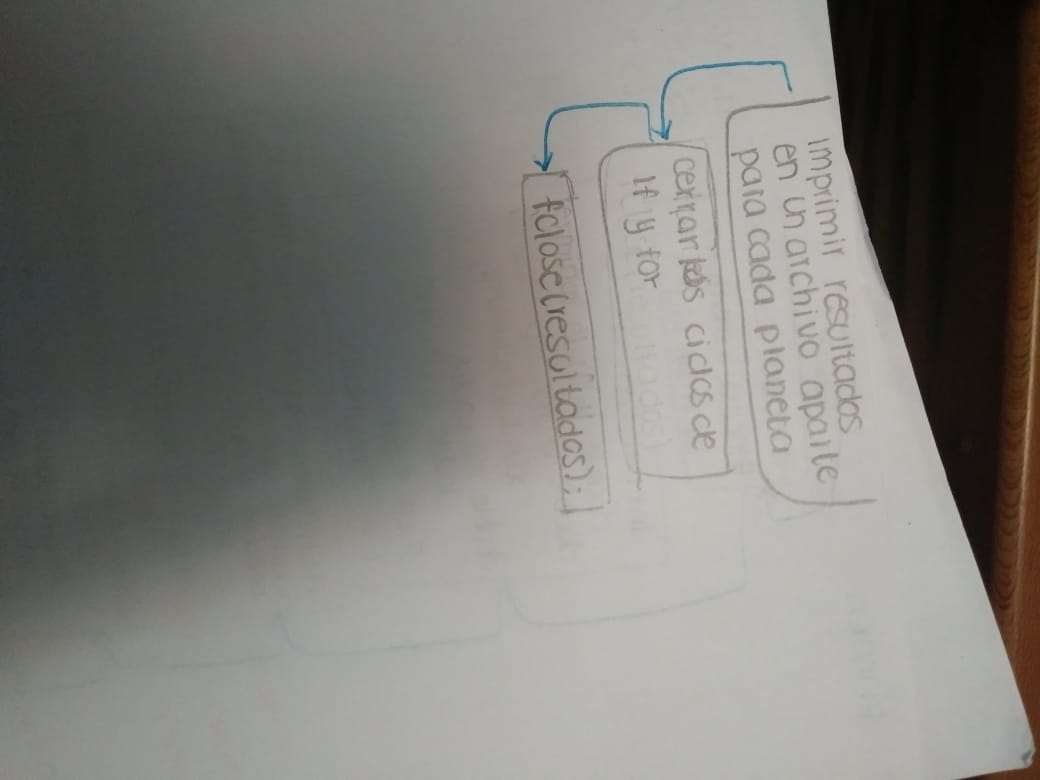 imprimir resultados
en un archivo aparte
para cada planeta
cerrar los ciclos de
If y for
fclose(resultados);